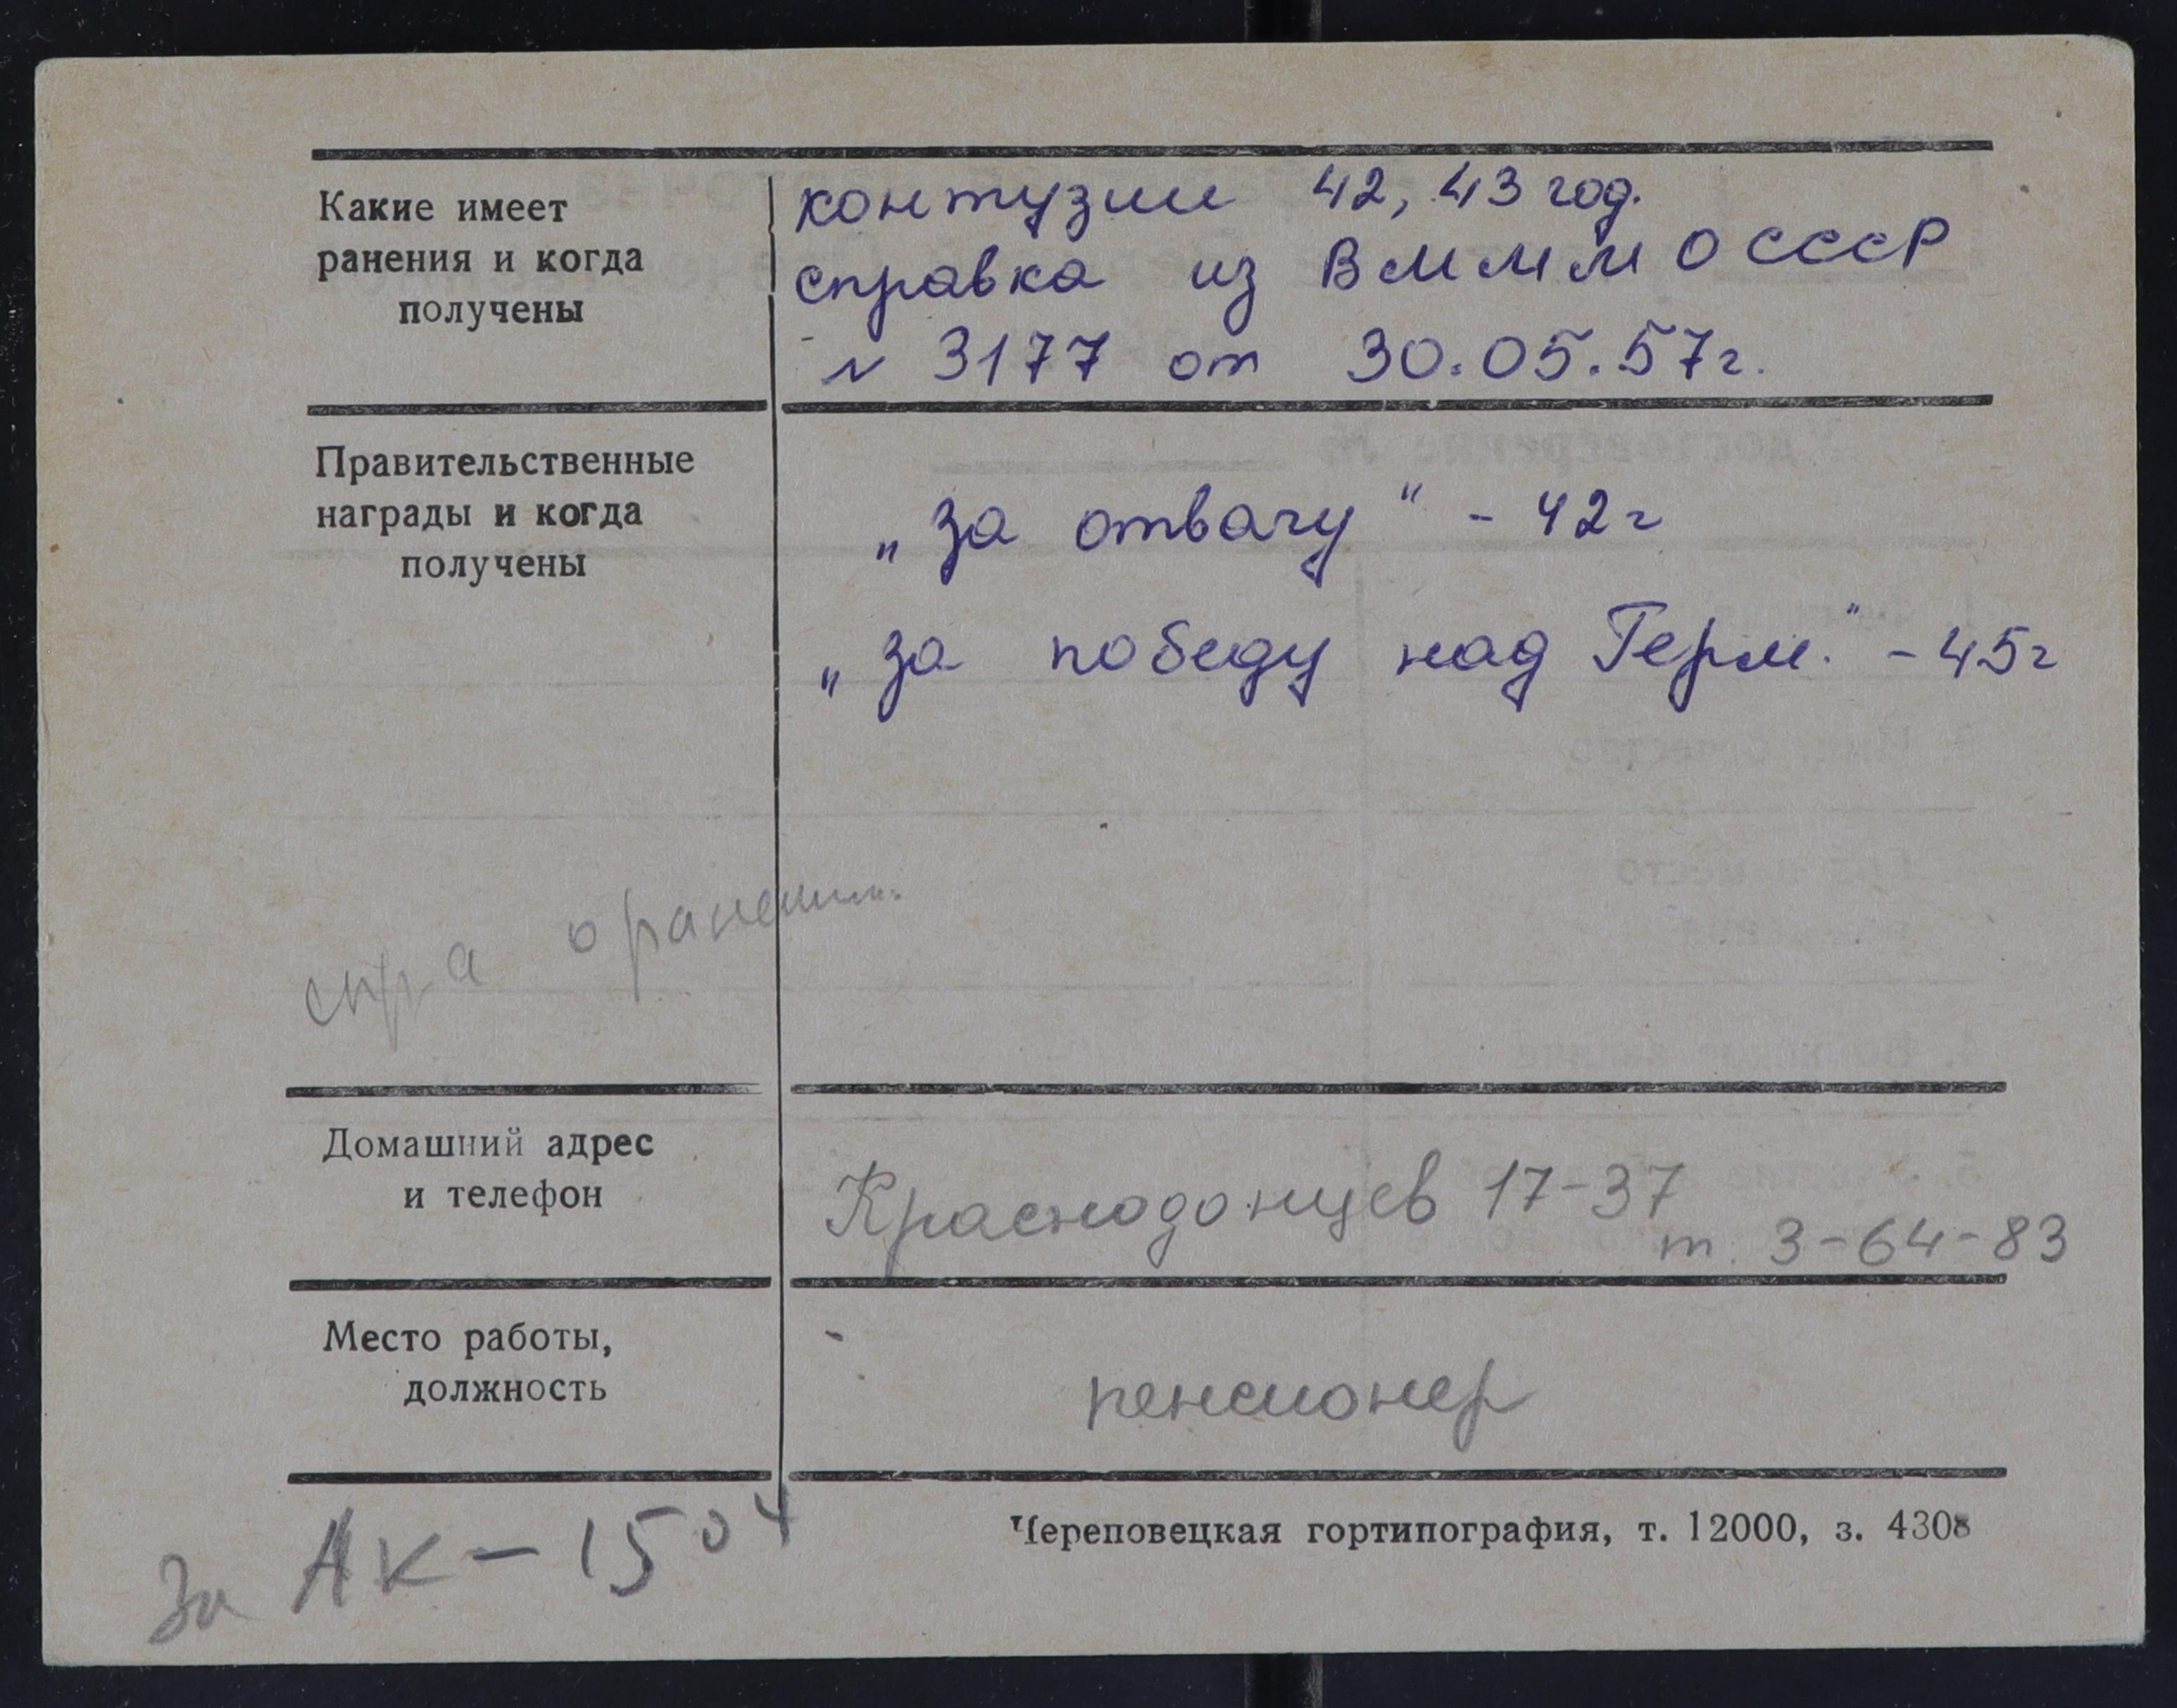 Какие имеет
ранения и когда
получены
контузии 42, 43 год.
справка из ВММ МО СССР
N 3177 от 30.05.57г.
Правительственные
награды и когда
получены
„за отвагу" - 42г
„за победу над Герм." - 45г
спр-а о ранении.
Домашний адрес
и телефон
Краснодонцев 17-37
т. 3-64-83
Место работы,
должность
пенсионер
За АК-1504
Череповецкая гортипография, т. 12000, з. 4308